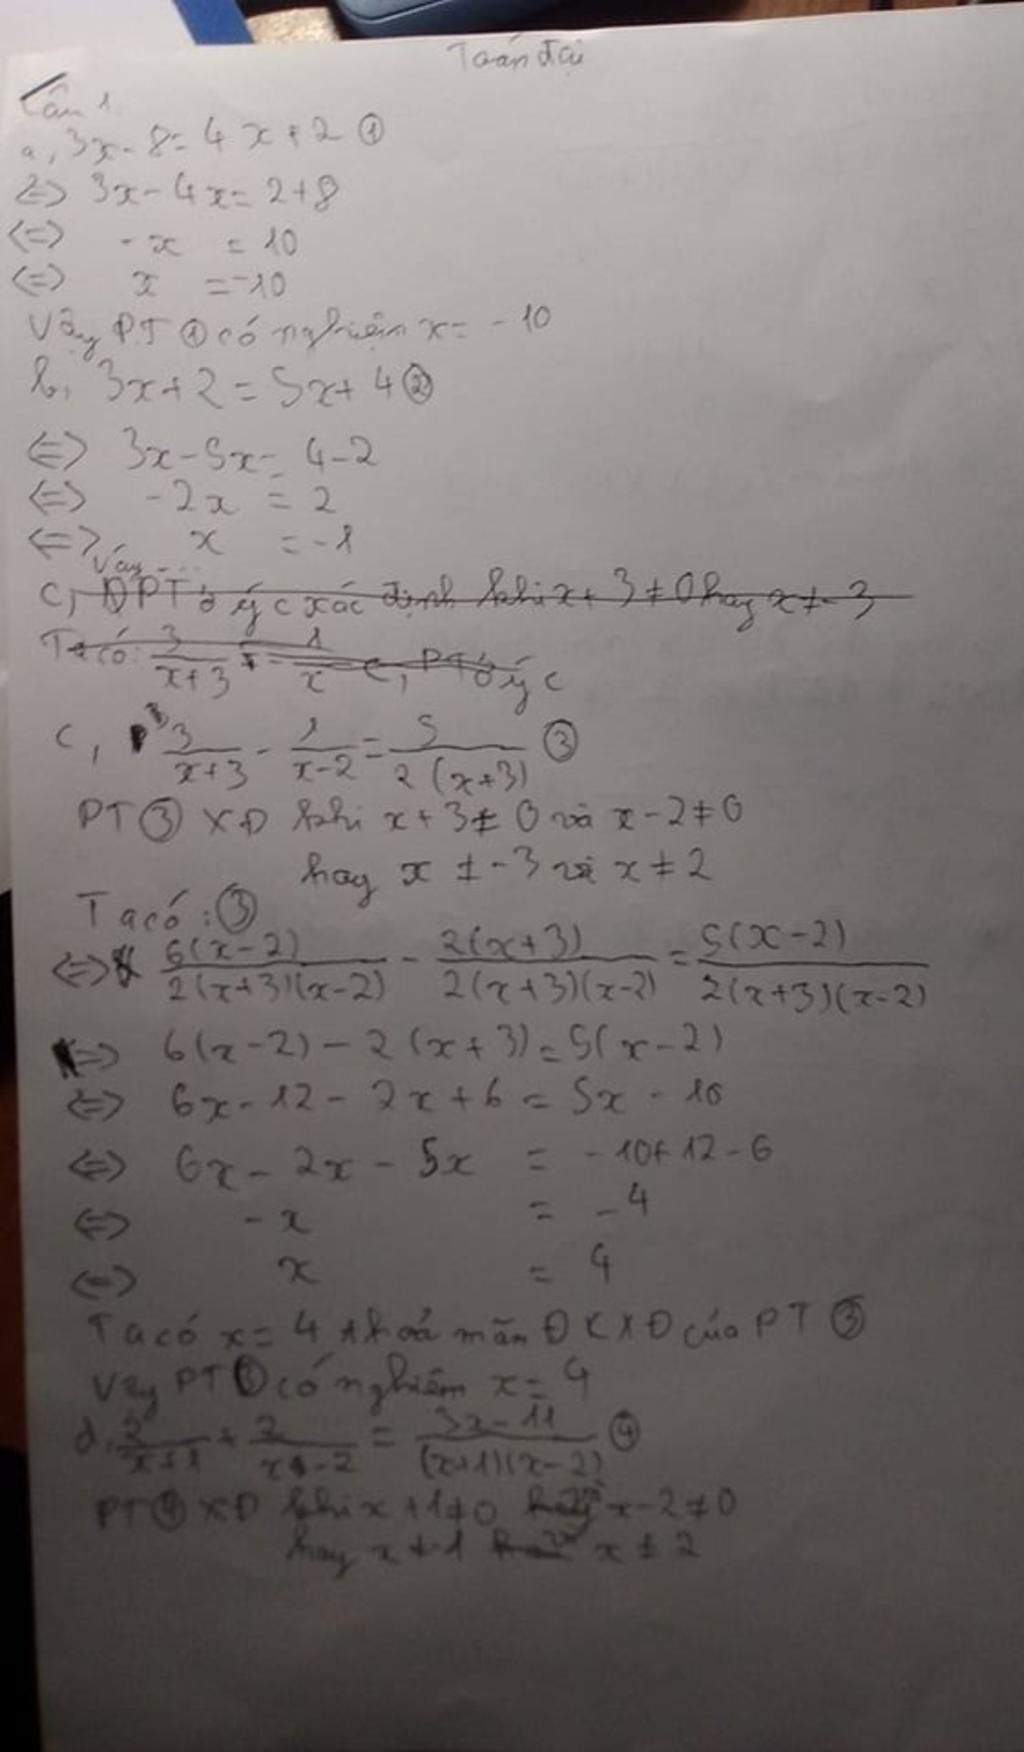 Toán đại
Câu 1.
a, 3x - 8 = 4x + 2 ①
<=> 3x - 4x = 2 + 8
<=> - x = 10
<=> x = -10
Vậy PT ① có nghiệm x = - 10
b, 3x + 2 = 5x + 4 ②
<=> 3x - 5x = 4 - 2
<=> - 2x = 2
<=> x = -1
Vậy ...
c, ĐPT ở ý c xác định khi x + 3 ≠ 0 hay x ≠ - 3
Ta có: 3/(x+3) = 1/x c, PT ở ý c
c, 3/(x+3) - 1/(x-2) = 5/(2(x+3)) ③
PT ③ XĐ khi x + 3 ≠ 0 và x - 2 ≠ 0
hay x ≠ -3 và x ≠ 2
Ta có: ③
<=> 6(x-2)/(2(x+3)(x-2)) - 2(x+3)/(2(x+3)(x-2)) = 5(x-2)/(2(x+3)(x-2))
<=> 6(x-2) - 2(x+3) = 5(x-2)
<=> 6x - 12 - 2x + 6 = 5x - 10
<=> 6x - 2x - 5x = - 10 + 12 - 6
<=> - x = - 4
<=> x = 4
Ta có x = 4 thoả mãn ĐKXĐ của PT ③
Vậy PT ③ có nghiệm x = 4
d, 2/(x+1) + 2/(x-2) = (3x-11)/((x+1)(x-2)) ④
PT ④ XĐ khi x + 1 ≠ 0 x - 2 ≠ 0
hay x ≠ -1 x ≠ 2